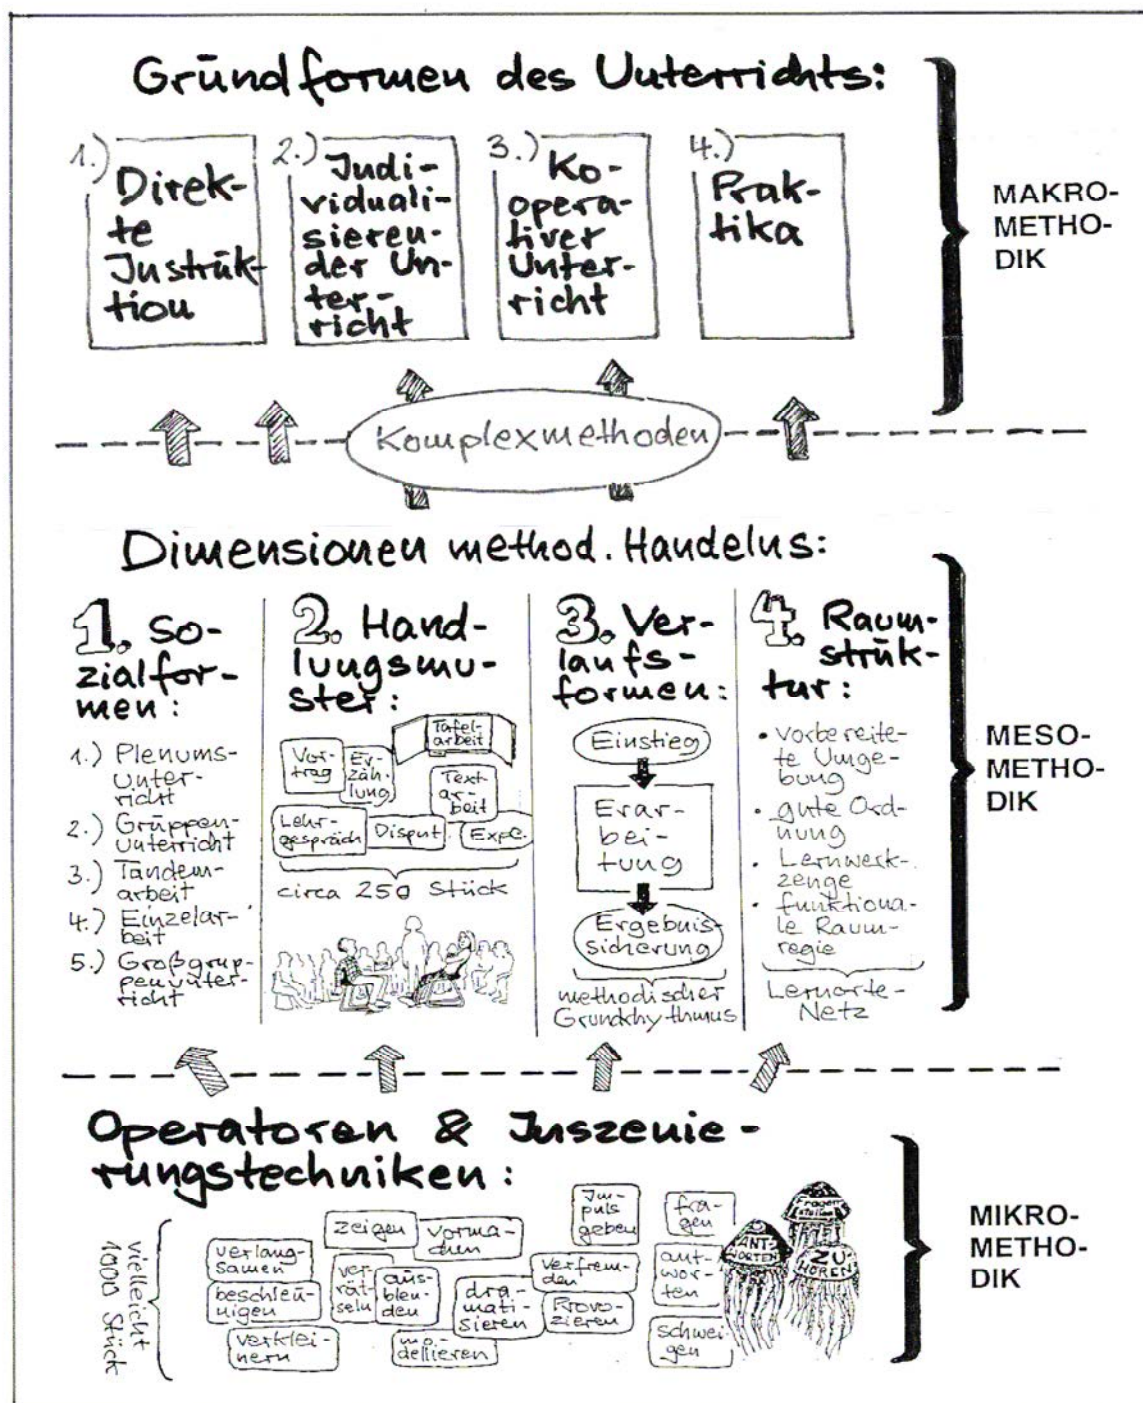 Grundformen des Unterrichts:
1.) Direk-
te
Instruk-
tion
2.) Indi-
viduali-
sieren-
der Un-
ter-
richt
3.) Ko-
opera-
tiver
Unter-
richt
4.) Prak-
tika
MAKRO-
METHO-
DIK
Komplexmethoden
Dimensionen method. Handelns:
1. So-
zialfor-
men:
1.) Plenums-
unter-
richt
2.) Gruppen-
unterricht
3.) Tandem-
arbeit
4.) Einzelar-
beit
5.) Großgrup-
penunter-
richt
2. Hand-
lungsmu-
ster:
Vor-
trag
Er-
zäh-
lung
Tafel-
arbeit
Text
ar-
beit
Lehr-
gespräch
Disput
Expe.
circa 250 Stück
3. Ver-
laufs-
formen:
Einstieg
Erar-
bei-
tung
Ergebnis-
sicherung
methodischer
Grundrhythmus
4. Raum-
struk-
tur:
• vorbereite-
te Umge-
bung
• gute Ord-
nung
• Lernwerk-
zeuge
• funktiona-
le Raum-
regie
Lernorte-
Netz
MESO-
METHO-
DIK
Operatoren & Inszenie-
rungstechniken:
vielleicht
1000 Stück
verlang-
samen
beschleu-
nigen
verklei-
nern
zeigen
vorma-
chen
ver-
rät-
seln
aus-
blen-
den
mo-
dellieren
dra-
mati-
sieren
Im-
puls
geben
verfrem-
den
Provo-
zieren
fra-
gen
ant-
wor-
ten
schwei-
gen
ANT-
WORTEN
Fragen
stellen
ZU
HÖREN
MIKRO-
METHO-
DIK